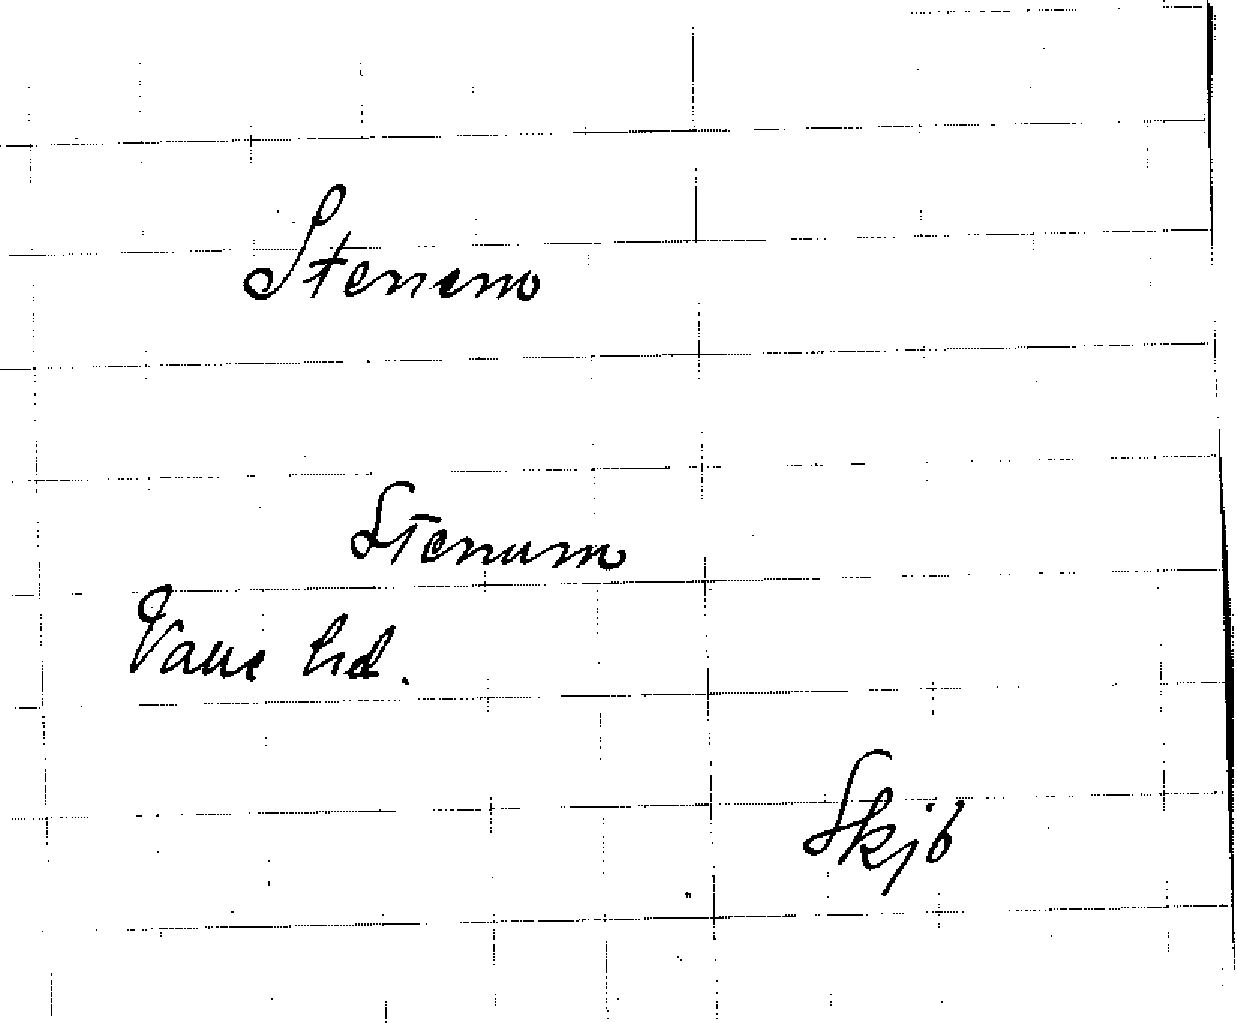 Stenum
Stenum
Valle hd.
Skjb